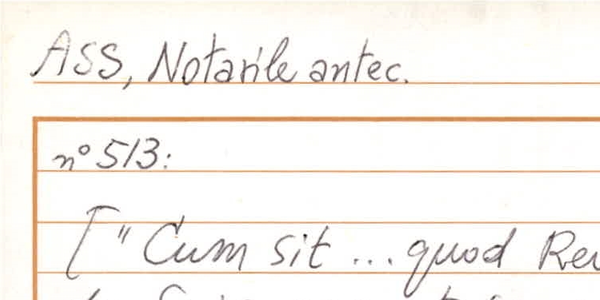 ASS, Notarile antec.
n° 513:
["Cum sit ... quod